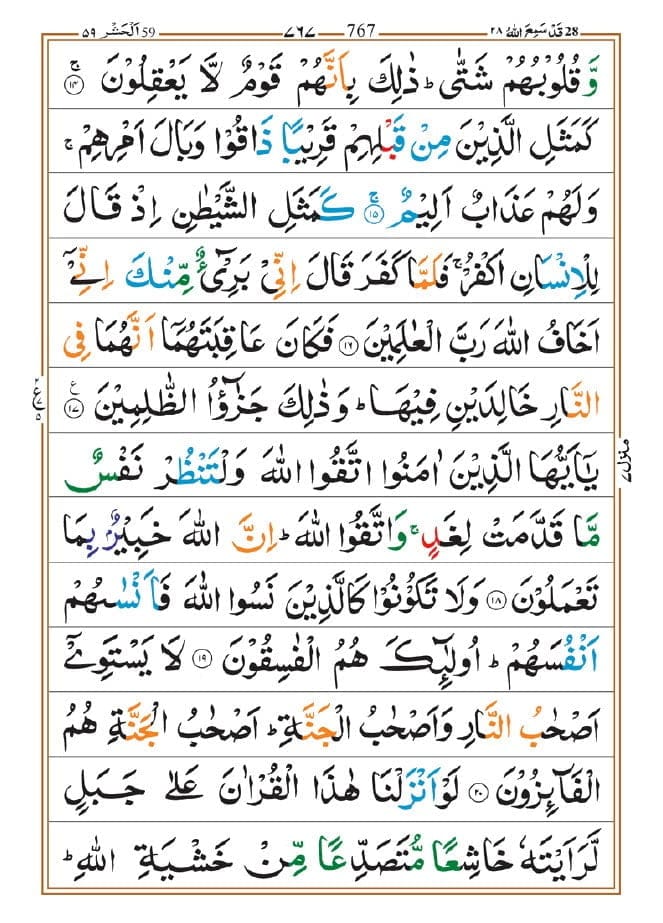 28 قَدْ سَمِعَ اللّٰهُ ٢٨ 767 ٧٦٧ 59 اَلْحَشْر ٥٩
وَّ قُلُوْبُهُمْ شَتّٰىؕ ذٰلِكَ بِاَنَّهُمْ قَوْمٌ لَّا يَعْقِلُوْنَۚ ۝١٤
كَمَثَلِ الَّذِيْنَ مِنْ قَبْلِهِمْ قَرِيْبًا ذَاقُوْا وَبَالَ اَمْرِهِمْۚ
وَلَهُمْ عَذَابٌ اَلِيْمٌۚ ۝١٥ كَمَثَلِ الشَّيْطٰنِ اِذْ قَالَ
لِلْاِنْسَانِ اكْفُرْۚ فَلَمَّا كَفَرَ قَالَ اِنِّيْ بَرِيْٓءٌ مِّنْكَ اِنِّيْۤ
اَخَافُ اللّٰهَ رَبَّ الْعٰلَمِيْنَ ۝١٦ فَكَانَ عَاقِبَتَهُمَاۤ اَنَّهُمَا فِي
النَّارِ خَالِدَيْنِ فِيْهَاؕ وَذٰلِكَ جَزٰٓؤُا الظّٰلِمِيْنَ ۝١٧ ع
يٰۤاَيُّهَا الَّذِيْنَ اٰمَنُوا اتَّقُوا اللّٰهَ وَلْتَنْظُرْ نَفْسٌ
مَّا قَدَّمَتْ لِغَدٍۚ وَاتَّقُوا اللّٰهَؕ اِنَّ اللّٰهَ خَبِيْرٌۢ بِمَا
تَعْمَلُوْنَ ۝١٨ وَلَا تَكُوْنُوْا كَالَّذِيْنَ نَسُوا اللّٰهَ فَاَنْسٰىهُمْ
اَنْفُسَهُمْؕ اُولٰٓئِكَ هُمُ الْفٰسِقُوْنَ ۝١٩ لَا يَسْتَوِيْۤ
اَصْحٰبُ النَّارِ وَاَصْحٰبُ الْجَنَّةِؕ اَصْحٰبُ الْجَنَّةِ هُمُ
الْفَآئِزُوْنَ ۝٢٠ لَوْ اَنْزَلْنَا هٰذَا الْقُرْاٰنَ عَلٰى جَبَلٍ
لَّرَاَيْتَهٗ خَاشِعًا مُّتَصَدِّعًا مِّنْ خَشْيَةِ اللّٰهِؕ
منزل ٧